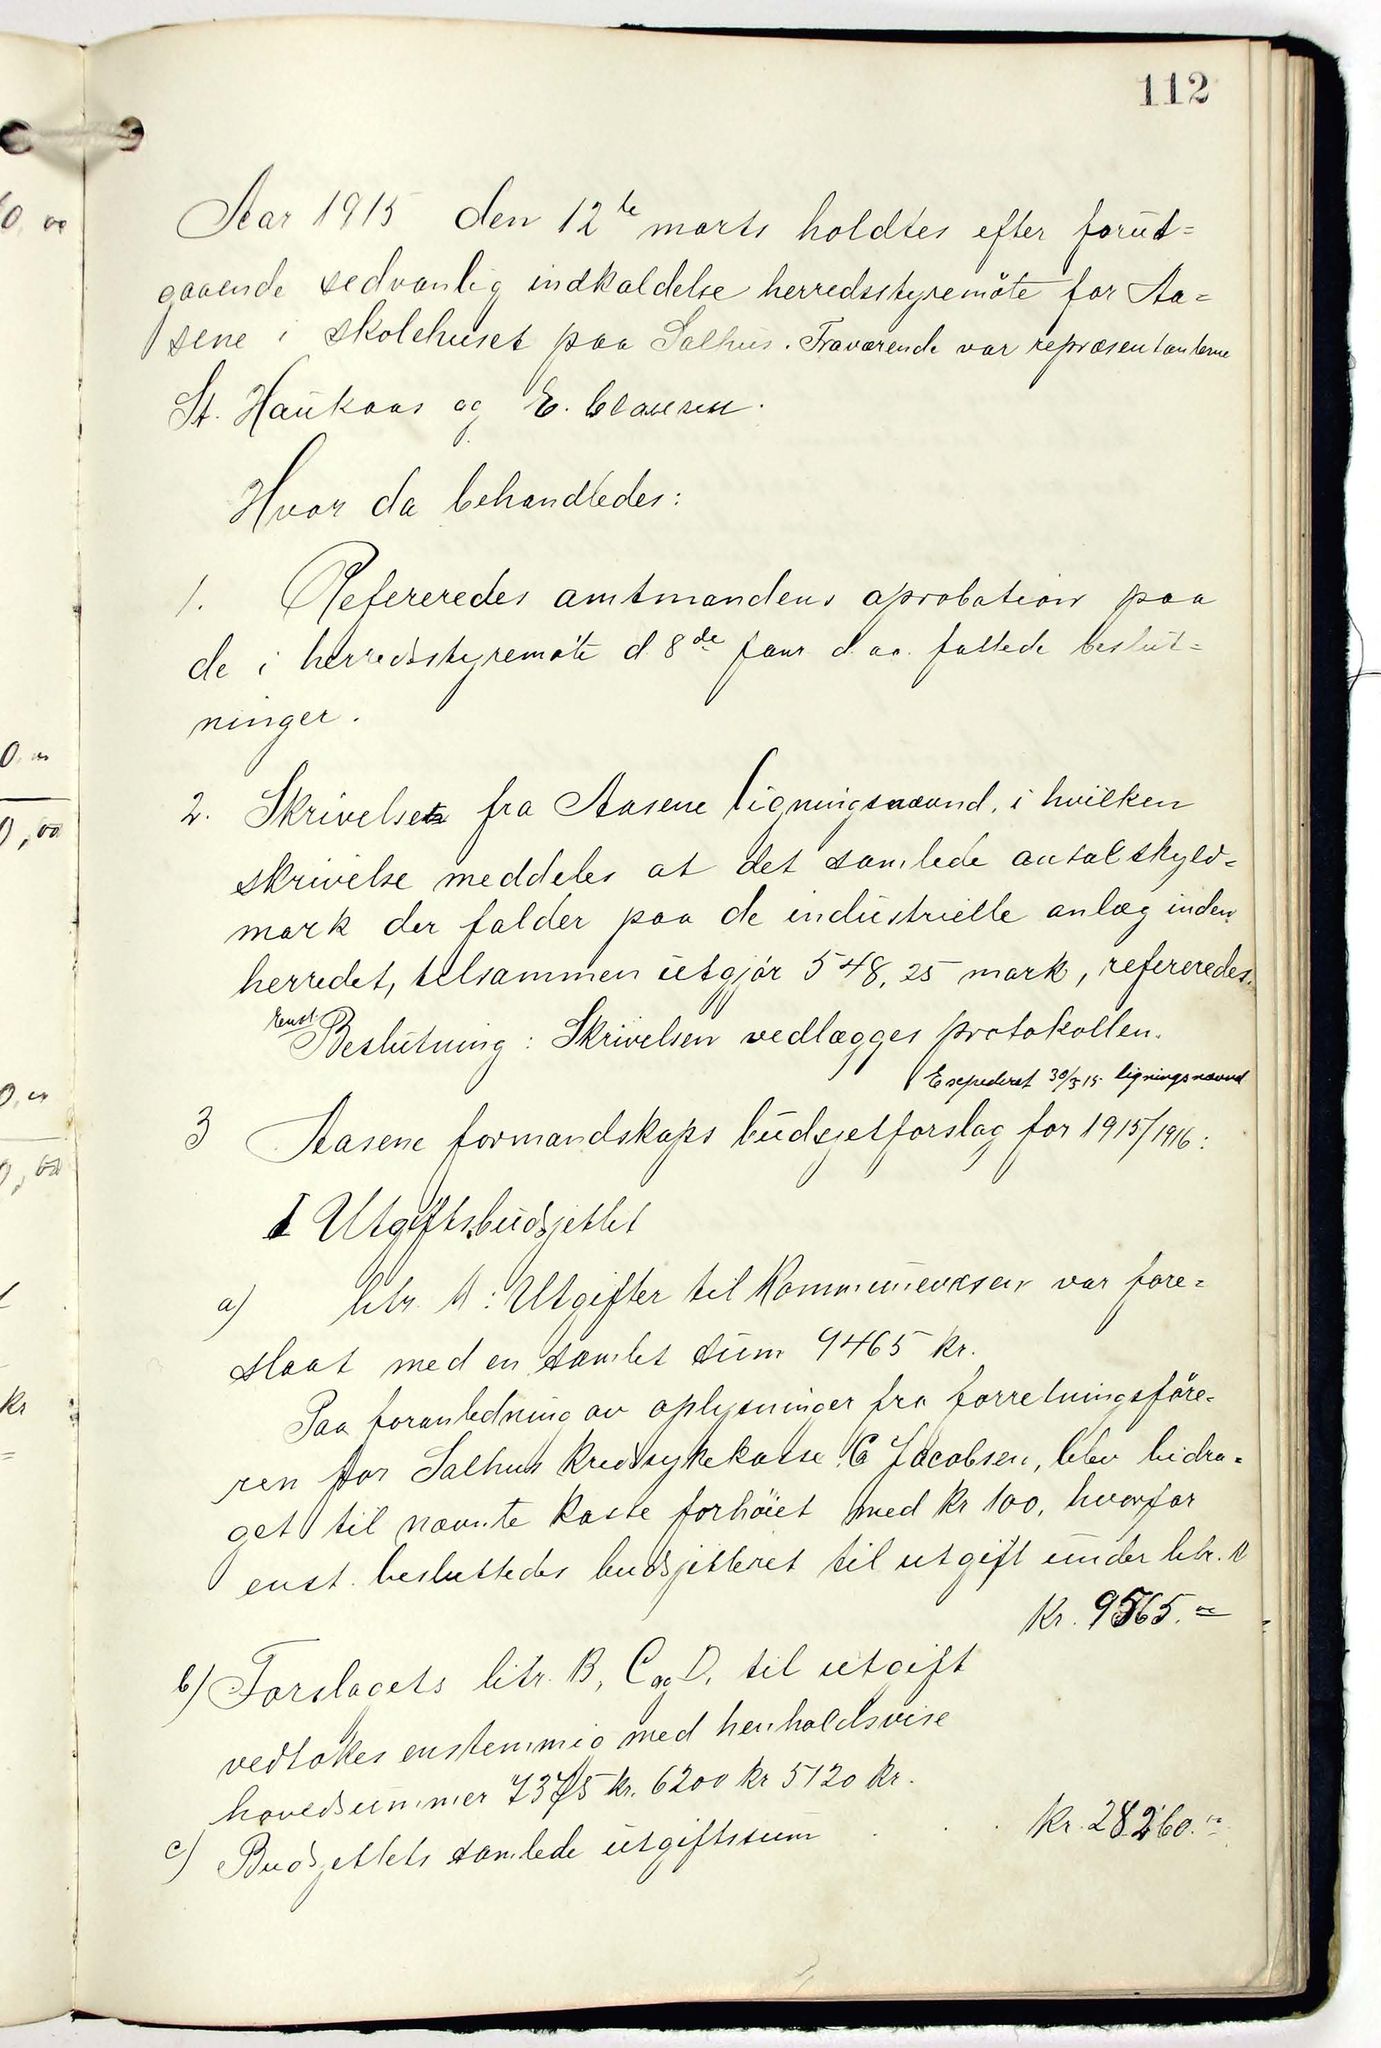 112
Aar 1915 den 12te marts holdtes efter forut=
gaaende sedvanlig indkaldelse herredsstyremöte for Aa=
sene i skolehuset paa Salhus. Fraværende var repræsentanterne
St. Haukaas og E. Clausen.
Hvor da behandledes:
1. Refereredes amtmandens aprobation paa
de i herredsstyremöte d. 8de janr d. aa. fattede beslut=
ninger.
2. Skrivelse fra Aasene ligningsnævnd, i hvilken
skrivelse meddeles at det samlede antal skyld=
mark der falder paa de industrielle anlæg inden
herredet, tilsammen utgjör 548,25 mark, refereredes.
Enst. Beslutning: Skrivelsen vedlægges protokollen.
Exspederet 30/3 15 ligningsnævnd
3 Aasene formandskaps budsjetforslag for 1915/1916:
I Utgiftsbudsjettet
a) litr. A: Utgifter til Kommunevæsen var fore=
slaat med en samlet sum 9465 kr.
Paa foranledning av oplysninger fra forretningsföre=
ren for Salhus kredssykekasse C Jacobsen, blev bidra=
get til nævnte kasse forhöiet med kr 100, hvorfor
enst. besluttedes budsjetteret til utgift under litr. A
Kr. 9565.00
b) Forslagets litr. B, C og D, til utgift
vedtokes enstemmig med henholdsvise
hovedsummer 7375 kr. 6200 kr 5120 kr.
c) Budsjettets samlede utgiftssum . . . Kr. 28260.00
0,00
0,00
0,00
0,00
0,00
kr
=